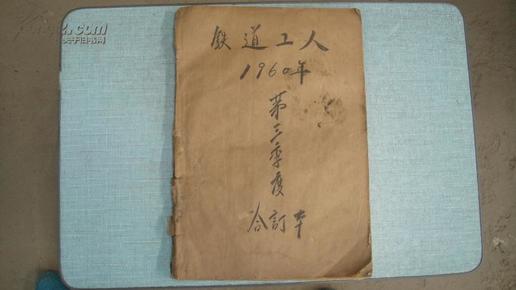 铁道工人
1960年
第三季度
合訂本